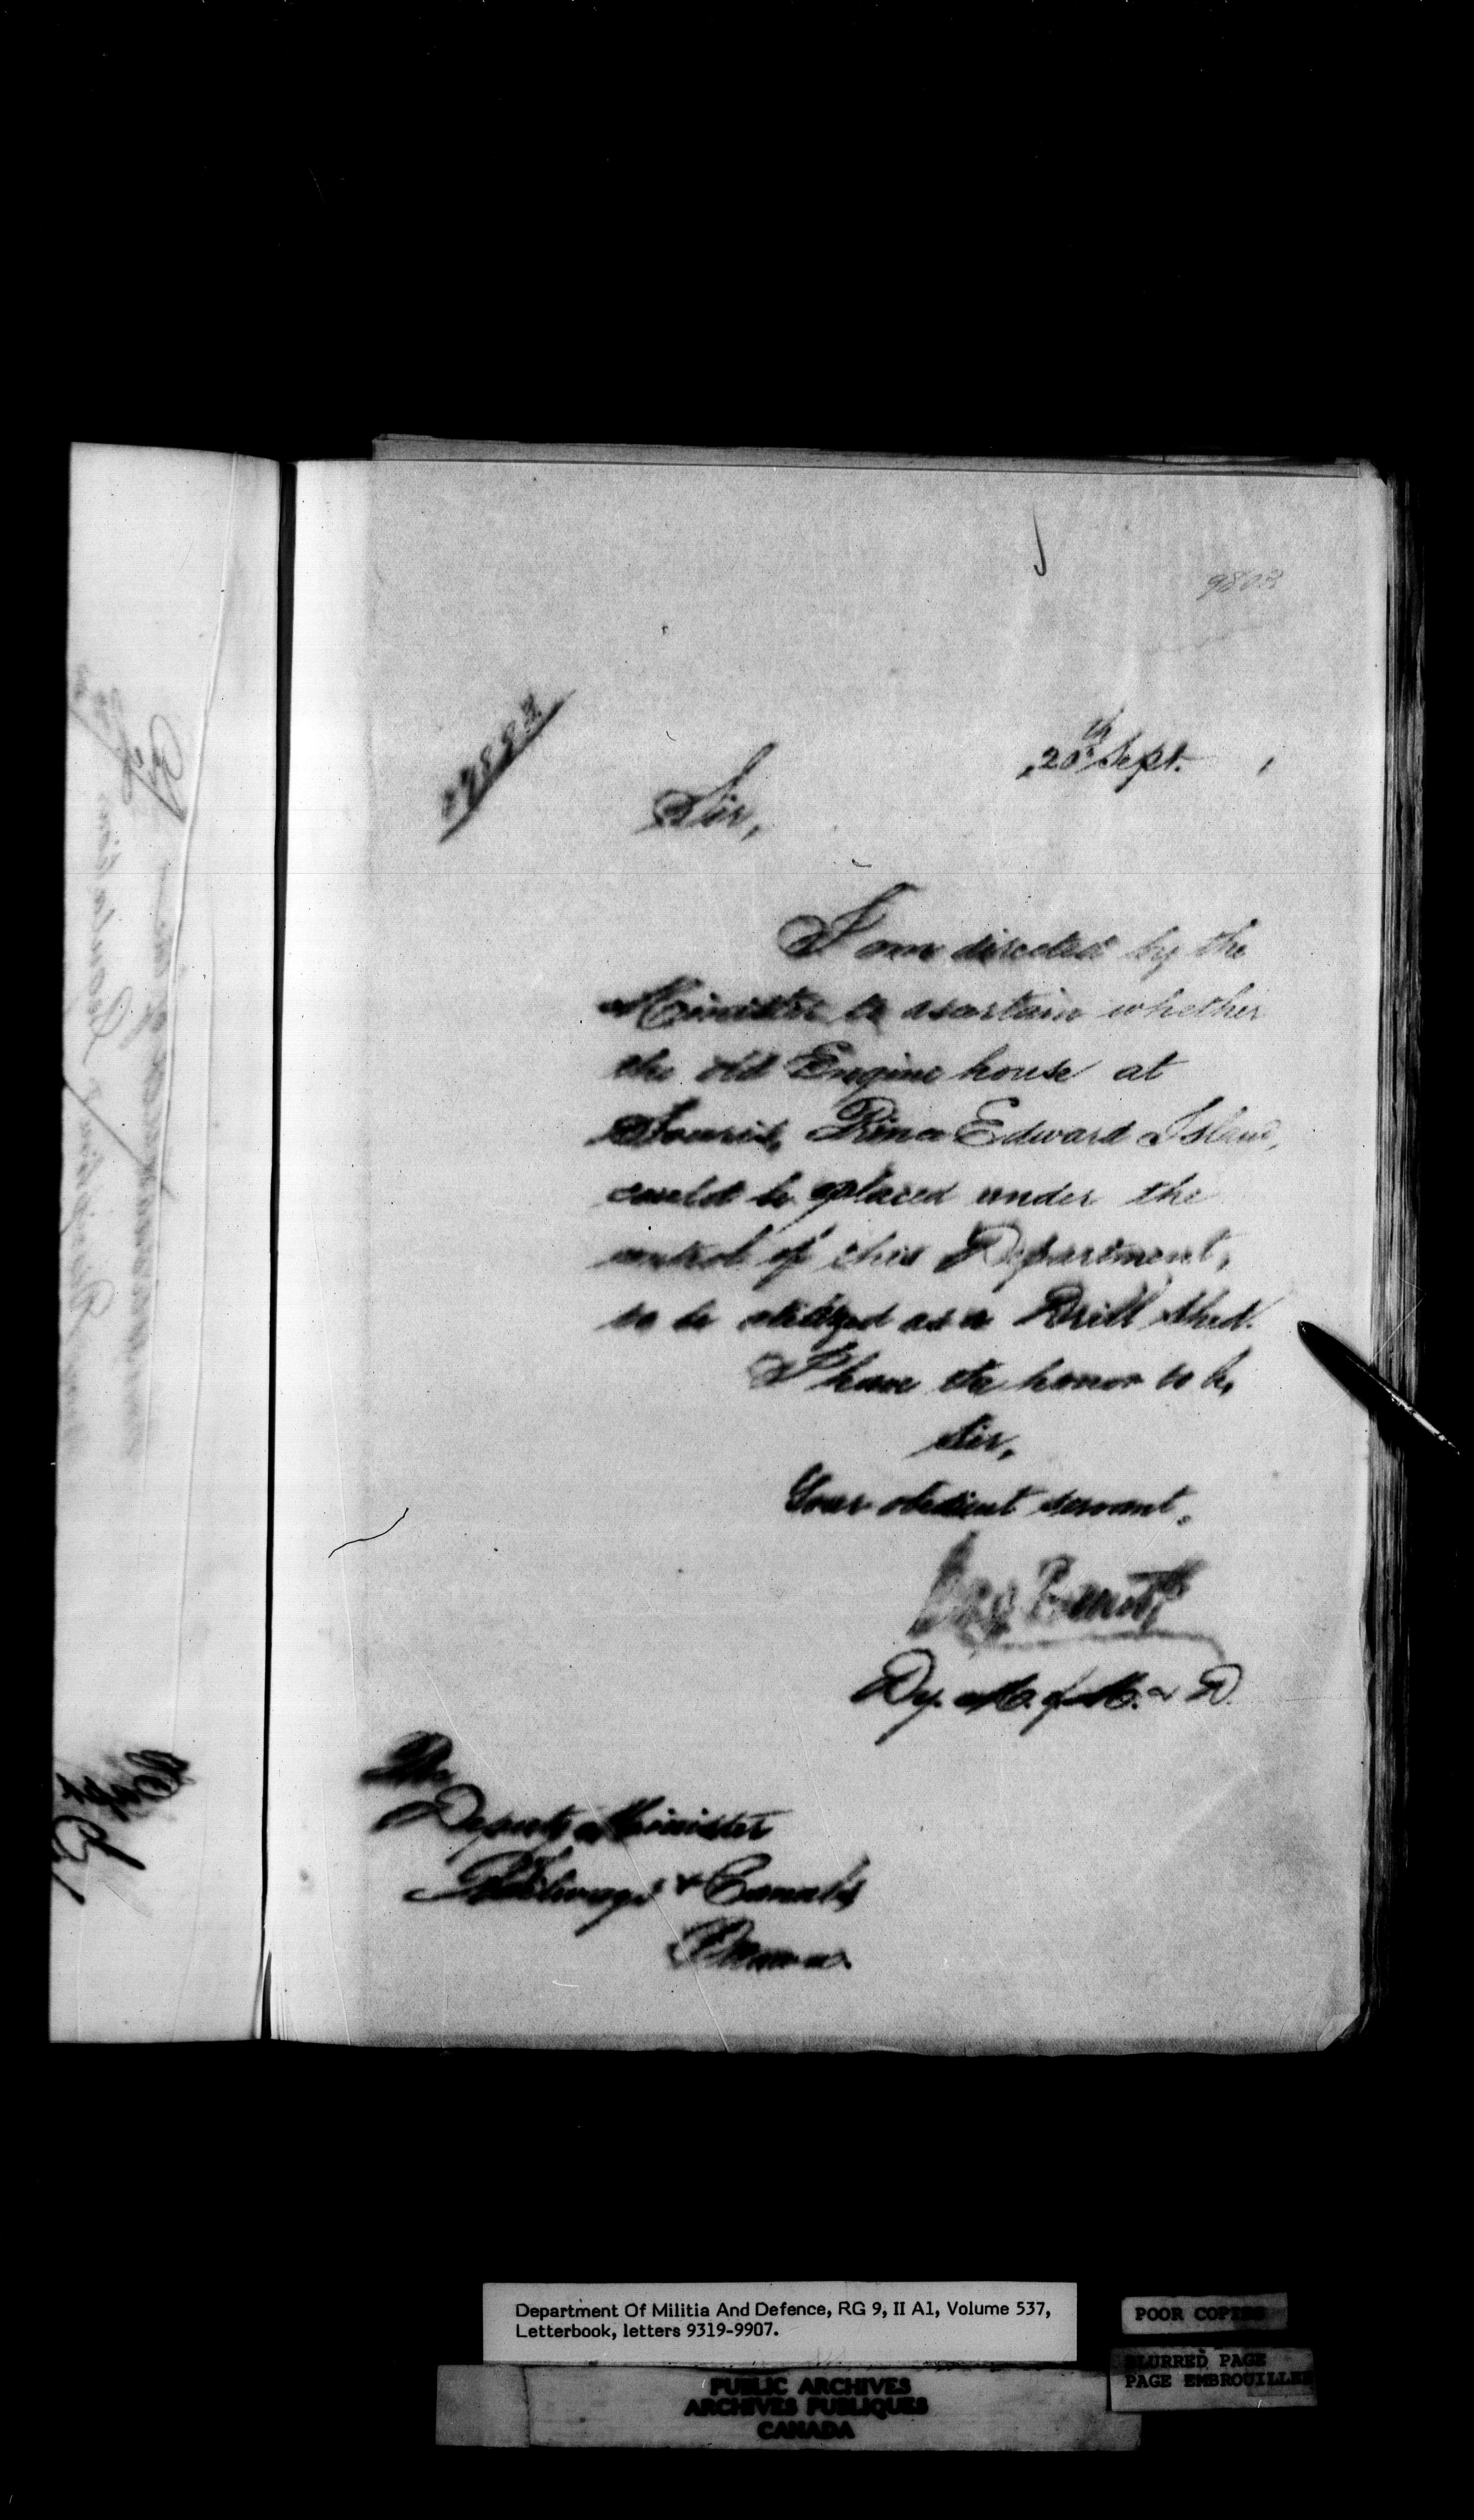 9803
20th Sept.
Sir,
I am directed by the
Minister to ascertain whether
the old Engine house at
Souris, Prince Edward Island,
could be placed under the
control of this Department,
to be utilized as a Drill Shed.
I have the honor to be,
Sir,
Your obedient servant,
Dy. M. of M. & D.
The
Deputy Minister
Railways & Canals
Ottawa.
Department Of Militia And Defence, RG 9, II A1, Volume 537,
Letterbook, letters 9319-9907.
POOR COPIES
BLURRED PAGE
PAGE EMBROUILLEE
PUBLIC ARCHIVES
ARCHIVES PUBLIQUES
CANADA